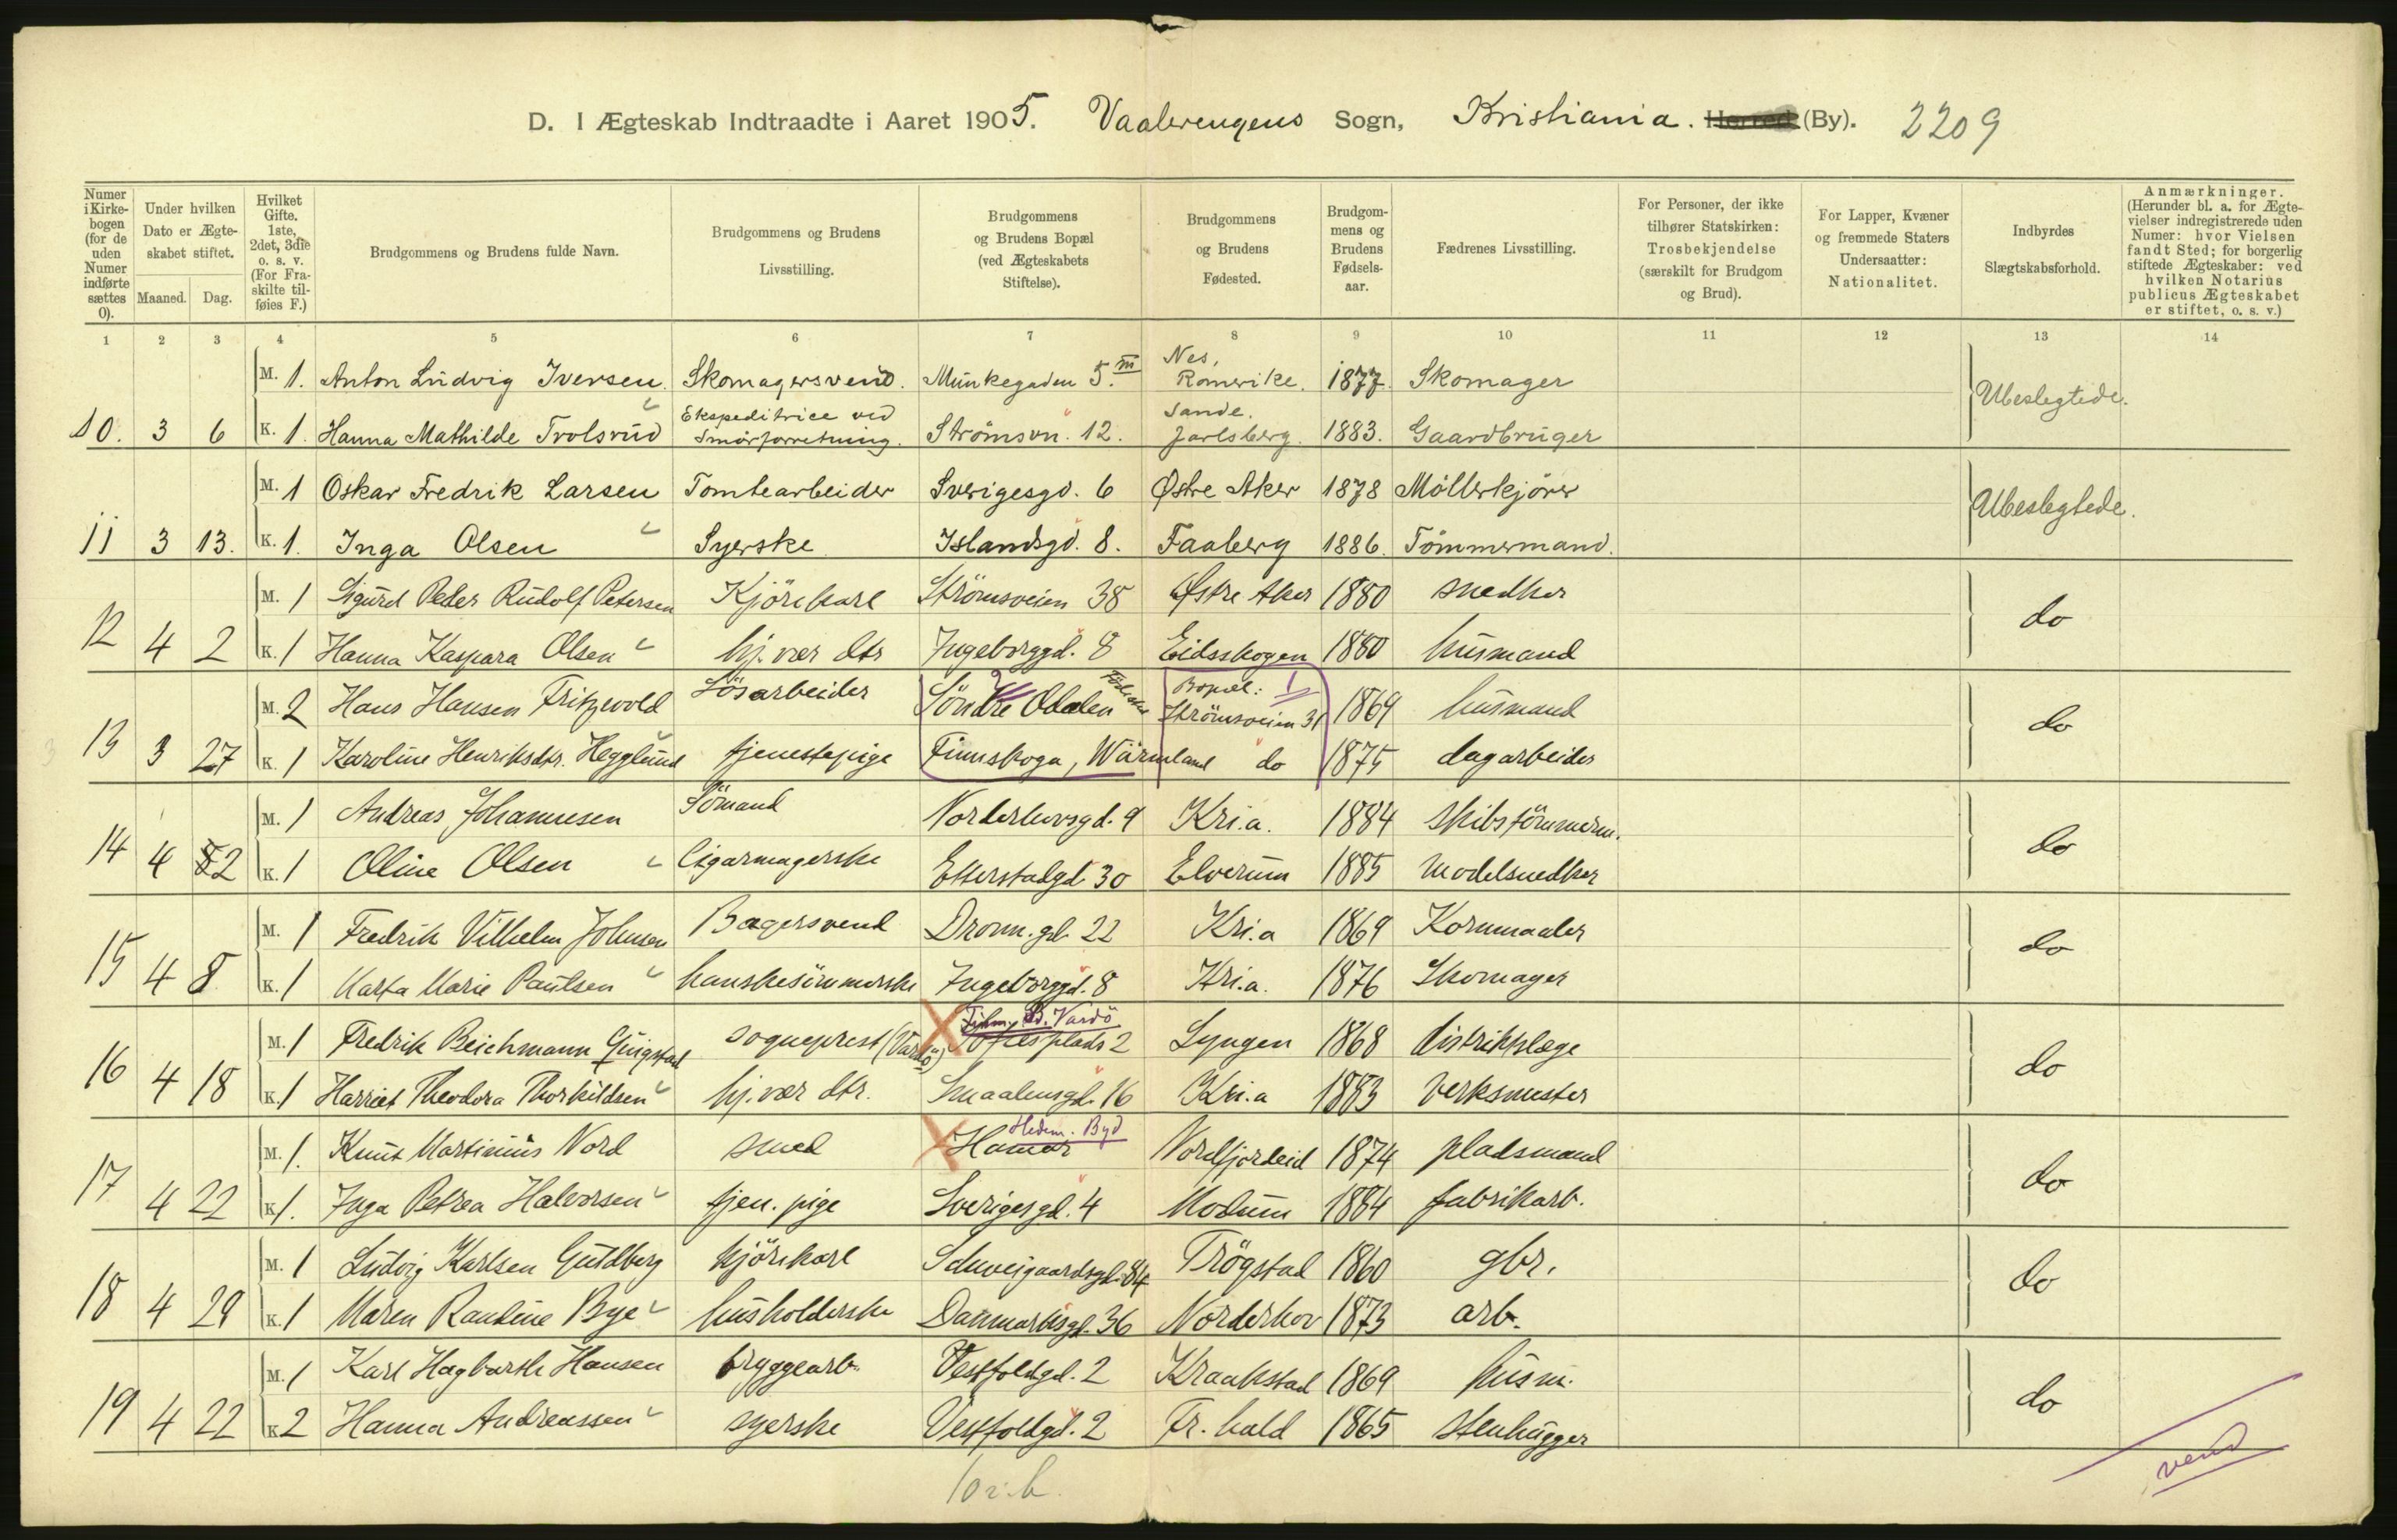 D. I Ægteskab Indtraadte i Aaret 1905. Vaalerengens Sogn, Kristiania. Herred (By). 2209
Numer i Kirke-bogen (for de uden Numer indførte sættes 0).
Under hvilken Dato er Ægte-skabet stiftet.
Maaned. Dag.
Hvilket Gifte. 1ste, 2det, 3die o. s. v. (For Fra-skilte til-føies F.)
Brudgommens og Brudens fulde Navn.
Brudgommens og Brudens Livsstilling.
Brudgommens og Brudens Bopæl (ved Ægteskabets Stiftelse).
Brudgommens og Brudens Fødested.
Brudgom-mens og Brudens Fødsels-aar.
Fædrenes Livsstilling.
For Personer, der ikke tilhører Statskirken: Trosbekjendelse (særskilt for Brudgom og Brud).
For Lapper, Kvæner og fremmede Staters Undersaatter: Nationalitet.
Indbyrdes Slægtskabsforhold.
Anmærkninger. (Herunder bl. a. for Ægte-vielser indregistrerede uden Numer: hvor Vielsen fandt Sted; for borgerlig stiftede Ægteskaber: ved hvilken Notarius publicus Ægteskabet er stiftet, o. s. v.)
1 2 3 4 5 6 7 8 9 10 11 12 13 14
M. 1. Anton Ludvig Iversen. Skomagersvend. Munkegaden 5. III Nes, Romerike. 1877. Skomager
10. 3 6 K. 1. Hanna Mathilde Trolsrud Ekspeditrice ved Smørforretning. Strömsvn. 12. Sande. Jarlsberg. 1883. Gaardbruger Ubeslegtede.
M. 1 Oskar Fredrik Larsen Tomtearbeider Sverigesgd. 6 Østre Aker 1878 Möllerkjörer
11 3 13. K. 1. Inga Olsen Syerske Islandsgd. 8. Faaberg 1886. Tömmermand. Ubeslegtede.
M. 1 Sigurd Peder Rudolf Petersen Kjörekarl Strömsveien 38 Østre Aker 1880 snedker
12 4 2 K. 1 Hanna Kaspara Olsen hj. vær dtr Ingeborggd. 8 Eidsskogen 1880 husmand do
M. 2 Hans Hansen Fritzvold Lösarbeider Söndre Odalen Födested Bopæl: Strömsveien 31 1869 husmand
13 3 27 K. 1 Karoline Henriksdtr. Hegglund tjenestepige Finnskoga, Wärmland do 1875 dagarbeider do
M. 1 Andreas Johannesen Sömand Norderhovsgd. 9 Kri.a. 1884 skibstömmerm.
14 4 2 K. 1 Oline Olsen Cigarmagerske Etterstadgd. 30 Elverum 1885 modelsnedker do
M. 1 Fredrik Vilhelm Johnsen Bagersvend Dronn. gd. 22 Kri.a 1869 Kornmaaler
15 4 8 K. 1 Marta Marie Paulsen hanskesömmerske Ingeborggd. 8 Kri.a. 1876 Skomager do
M. 1 Fredrik Beichmann Quigstad sogneprest (Vardö) Finm. B. Vardö Toftesplads 2 Lyngen 1868 distriktslæge
16 4 18 K. 1 Harriet Theodora Thorkildsen hj. vær dtr. Smaalensgd. 16 Kri.a 1883 Verksmester do
M. 1. Knut Martinius Nord smed Hedem. Byd Hamar Nordfjordeid 1874 pladsmand
17 4 22 K. 1. Inga Petrea Halvorsen tjen. pige Sverigesgd. 4 Modum 1884 fabrikarb. do
M. 1 Ludvig Karlsen Guldberg kjörekarl Schweigaardsgd. 84 Trögstad 1860 gbr.
18 4 29 K. 1 Maren Randine Bye husholderske Danmarksgd. 36 Norderhov 1873 arb. do
M. 1 Karl Hagbarth Hansen bryggearb. Vestfoldgd. 2 Kraakstad 1869 husm.
19 4 22 K. 2 Hanna Andreassen syerske Vestfoldgd. 2 Fr.hald 1865 stenhugger do
vend